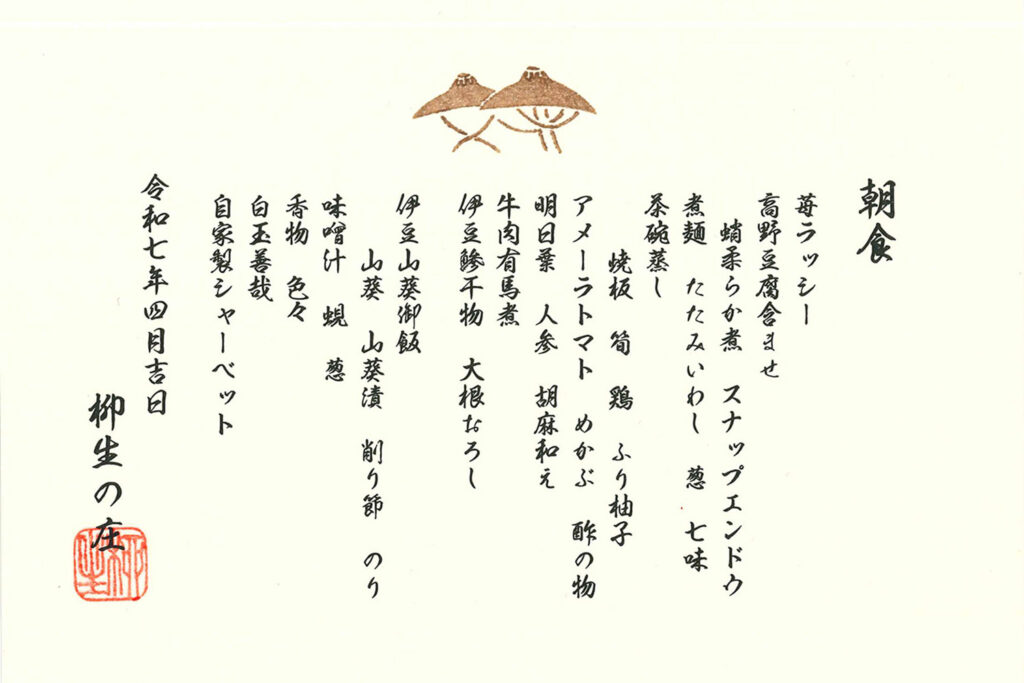 朝食
苺ラッシー
高野豆腐含ませ
蛸柔らか煮 スナップエンドウ
煮麺 たたみいわし 葱 七味
茶碗蒸し
焼板 筍 鶏 ふり柚子
アメーラトマト めかぶ 酢の物
明日葉 人参 胡麻和え
牛肉有馬煮
伊豆鯵干物 大根おろし
伊豆山葵御飯
山葵 山葵漬 削り節 のり
味噌汁 蜆 葱
香物 色々
白玉善哉
自家製シャーベット
令和七年四月吉日
柳生の庄